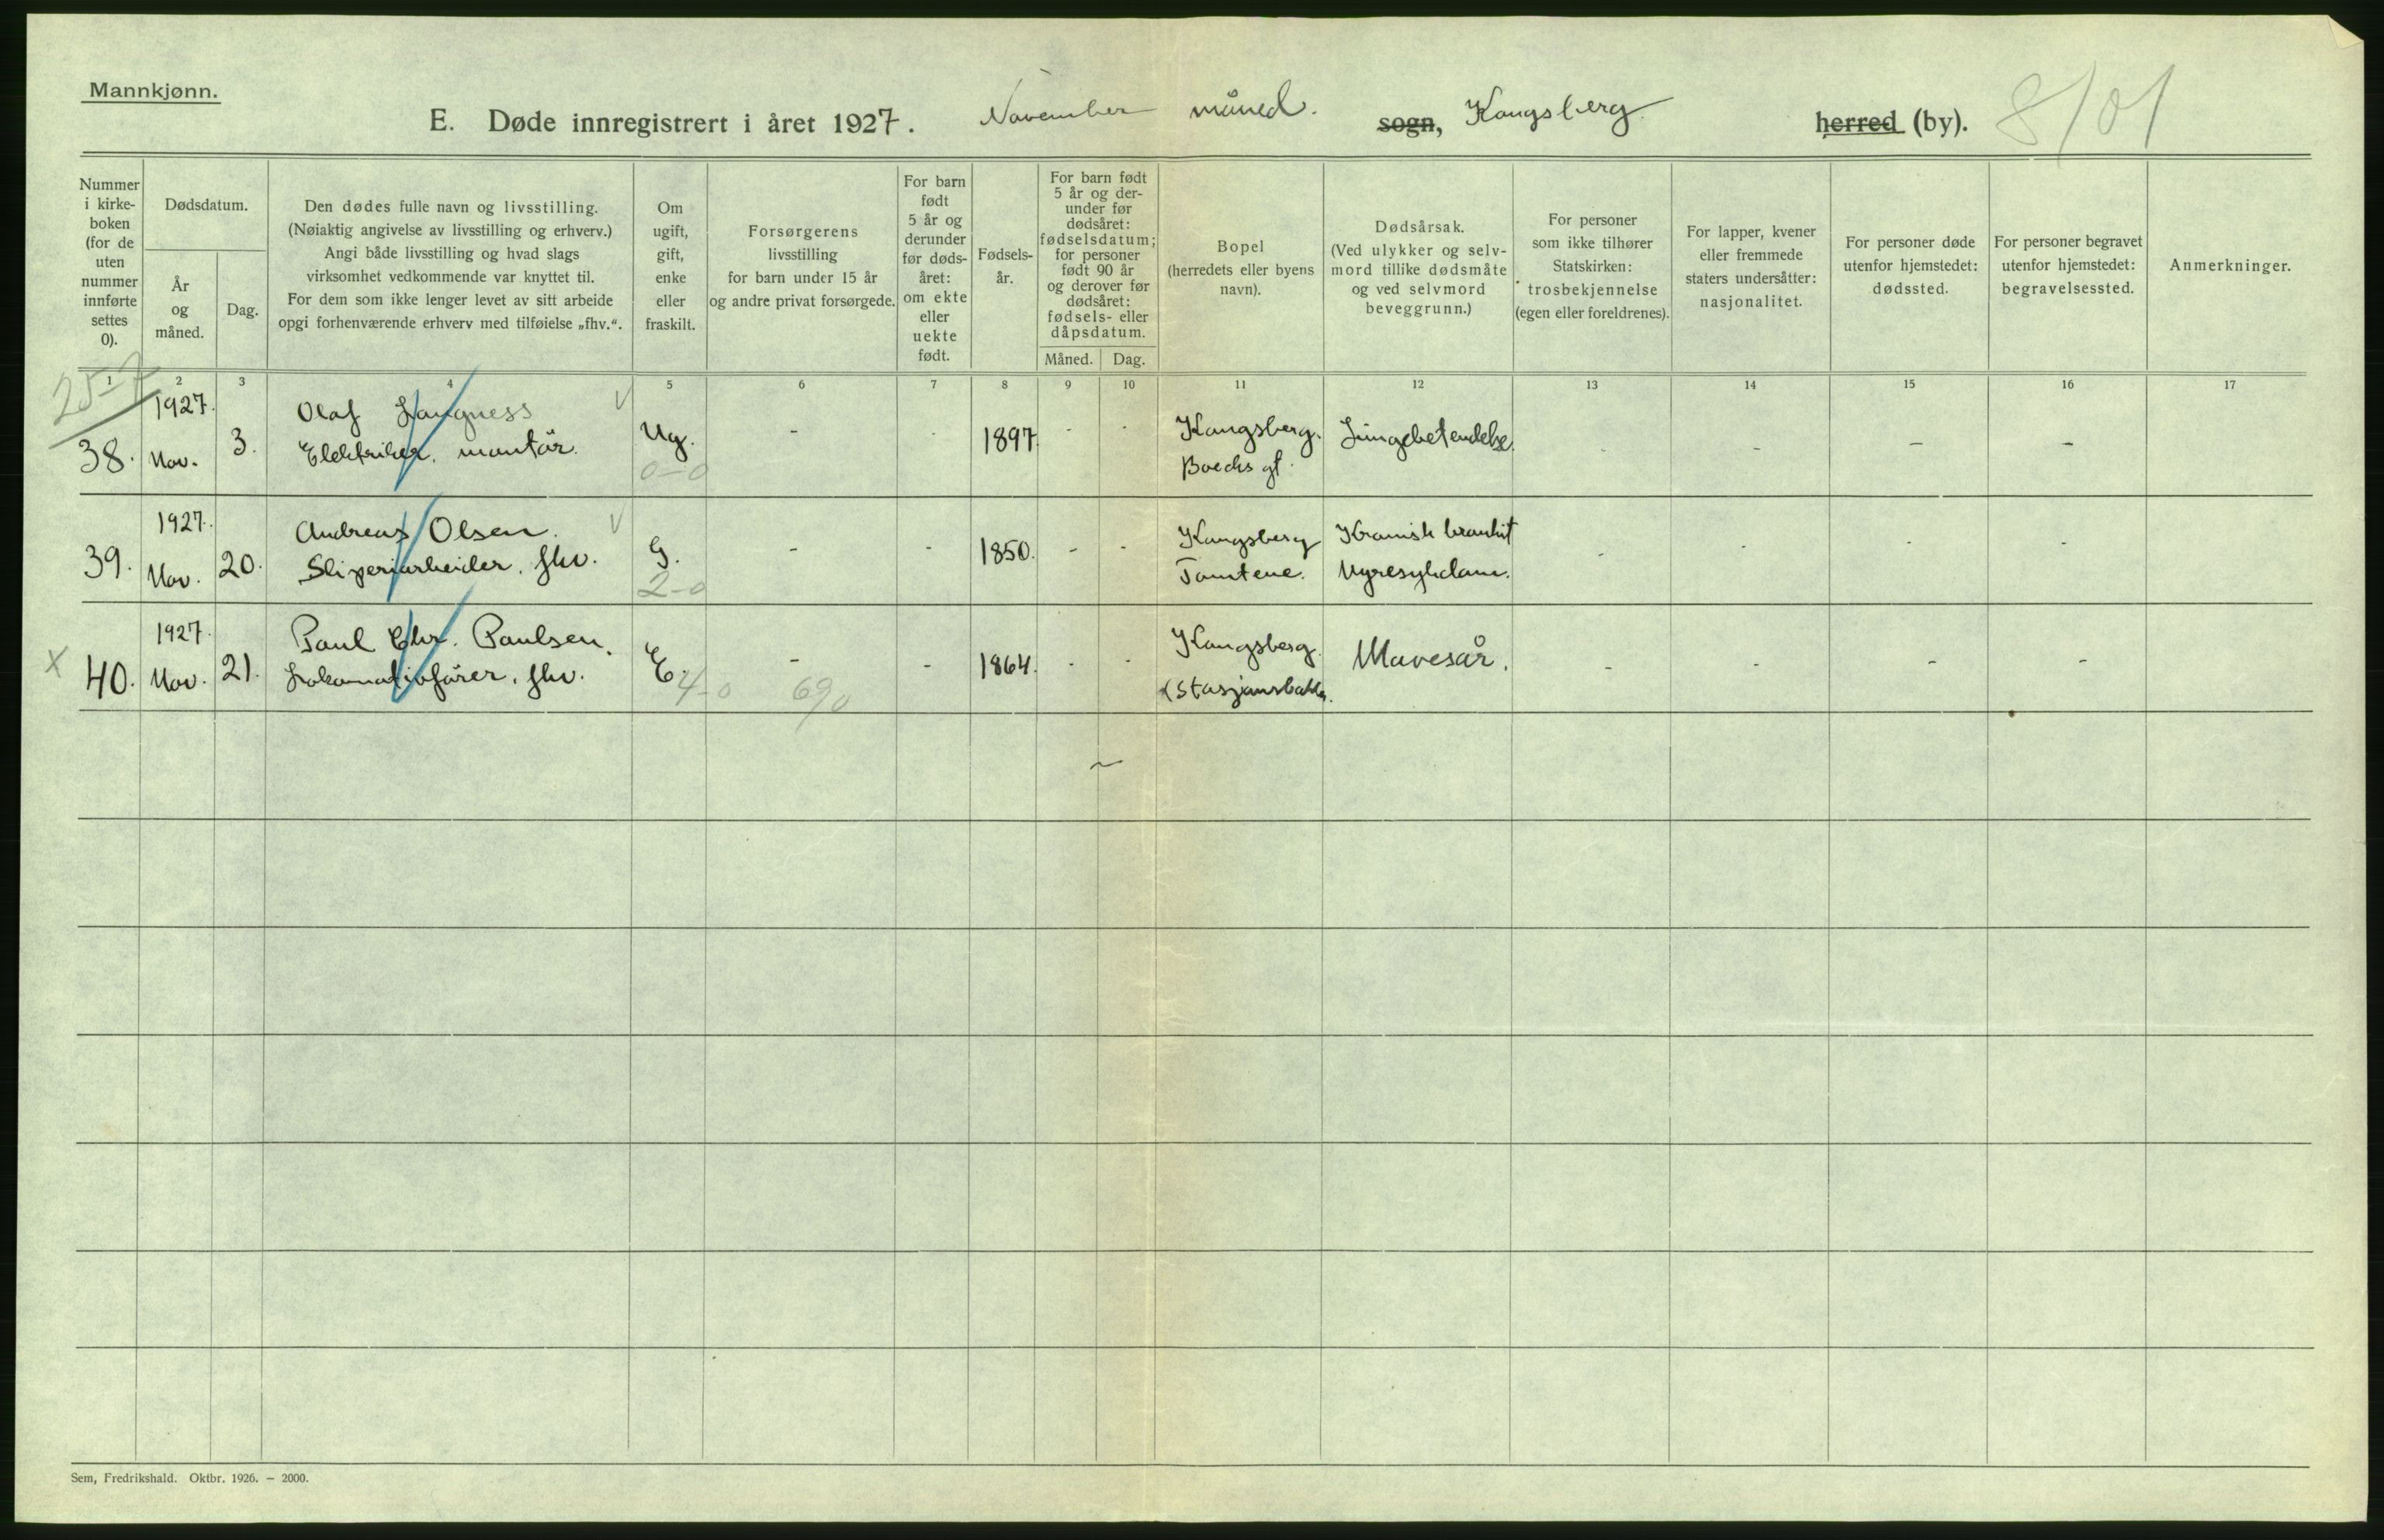 Mannkjønn.
E. Døde innregistrert i året 1927. November måned. sogn, Kongsberg herred (by). 8/01
Nummer i kirke- boken (for de uten nummer innførte settes 0).
Dødsdatum.
År og måned.
Dag.
Den dødes fulle navn og livsstilling.
(Nøiaktig angivelse av livsstilling og erhverv.)
Angi både livsstilling og hvad slags
virksomhet vedkommende var knyttet til.
For dem som ikke lenger levet av sitt arbeide
opgi forhenværende erhverv med tilføielse „fhv.“.
Om ugift, gift, enke eller fraskilt.
Forsørgerens
livsstilling
for barn under 15 år
og andre privat forsørgede.
For barn født 5 år og derunder før døds- året: om ekte eller uekte født.
Fødsels- år.
For barn født
5 år og der-
under før
dødsåret:
fødselsdatum;
for personer
født 90 år
og derover før
dødsåret:
fødsels- eller
dåpsdatum.
Måned. Dag.
Bopel
(herredets eller byens
navn).
Dødsårsak.
(Ved ulykker og selv-
mord tillike dødsmåte
og ved selvmord
beveggrunn.)
For personer
som ikke tilhører
Statskirken:
trosbekjennelse
(egen eller foreldrenes).
For lapper, kvener
eller fremmede
staters undersåtter:
nasjonalitet.
For personer døde
utenfor hjemstedet:
dødssted.
For personer begravet
utenfor hjemstedet:
begravelsessted.
Anmerkninger.
1 2 3 4 5 6 7 8 9 10 11 12 13 14 15 16 17
25-7
38. 1927. Nov. 3. Olaf Langness
Elektriker, montör. Ug. 0-0 - - 1897. - - Kongsberg.
Boecks gt. Lungebetendelse. - - - -
39. 1927. Nov. 20. Andreas Olsen.
Sliperiarbeider, fhv. G. 2-0 - - 1850. - - Kongsberg
Tomtene. Kronisk bronkit
Nyresykdom. - - - -
X 40. 1927. Nov. 21. Paul Chr. Paulsen.
Lokomotivfører, fhv. E. 4-0 - 69/0 - 1864. - - Kongsberg.
(Stasjonsbakken. Mavesår. - - - -
Sem, Fredrikshald. Oktbr. 1926. — 2000.